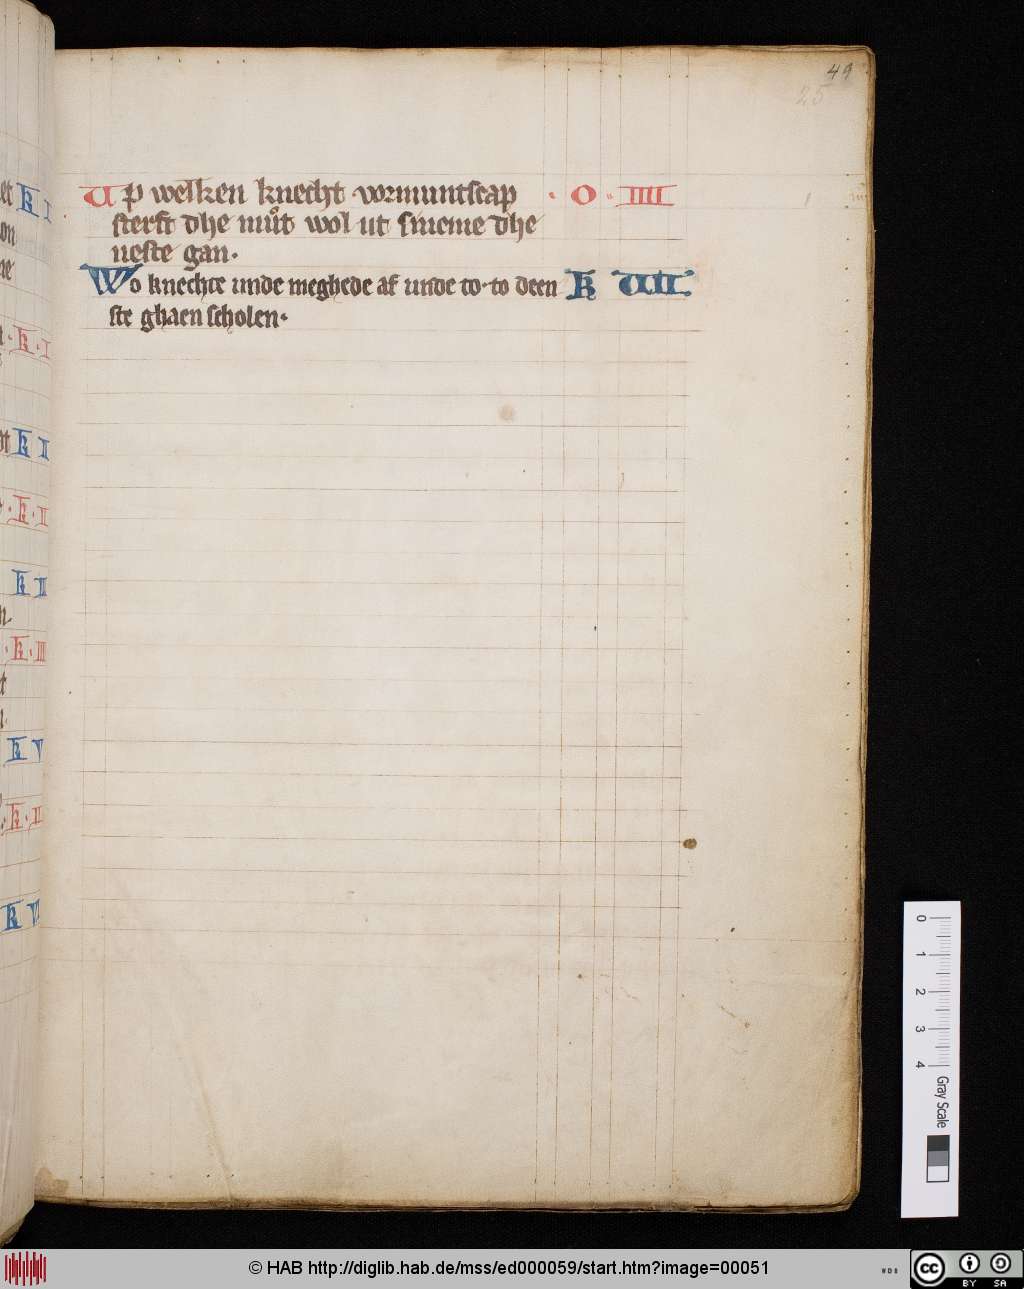 49
25
Up welken knecht vormuntscap · O · IIII
sterft dhe můt wol ut sineme dhe
neste gan.
Wo knechte unde meghede af unde to to deen K VII.
ste ghaen scholen.
0 1 2 3 4 Gray Scale
© HAB http://diglib.hab.de/mss/ed000059/start.htm?image=00051
cc BY SA